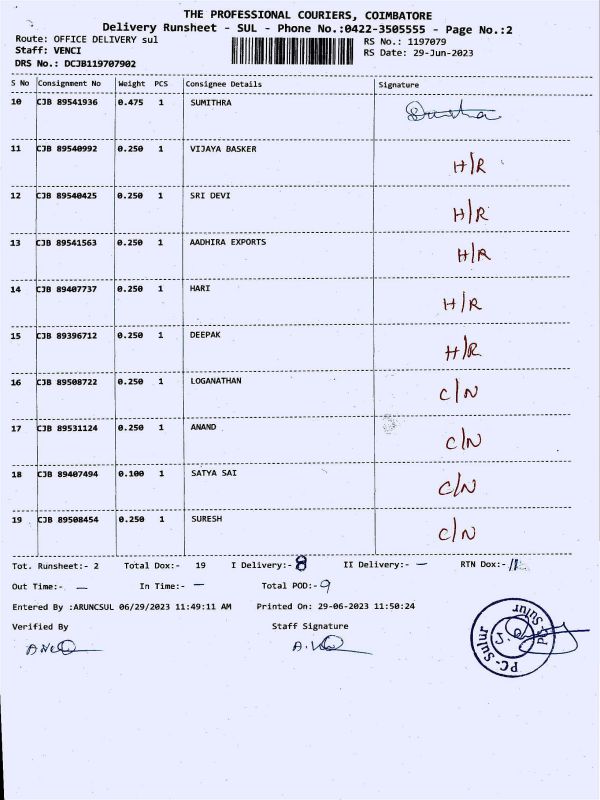 THE PROFESSIONAL COURIERS, COIMBATORE
Delivery Runsheet - SUL - Phone No.:0422-3505555 - Page No.:2
Route: OFFICE DELIVERY sul
Staff: VENCI
DRS No.: DCJB119707902
RS No.: 1197079
RS Date: 29-Jun-2023
S No Consignment No Weight PCS Consignee Details Signature
10 CJB 89541936 0.475 1 SUMITHRA
11 CJB 89540992 0.250 1 VIJAYA BASKER H/R
12 CJB 89540425 0.250 1 SRI DEVI H/R
13 CJB 89541563 0.250 1 AADHIRA EXPORTS H/R
14 CJB 89407737 0.250 1 HARI H/R
15 CJB 89396712 0.250 1 DEEPAK H/R
16 CJB 89508722 0.250 1 LOGANATHAN C/N
17 CJB 89531124 0.250 1 ANAND C/N
18 CJB 89407494 0.100 1 SATYA SAI C/N
19 CJB 89508454 0.250 1 SURESH C/N
Tot. Runsheet:- 2 Total Dox:- 19 I Delivery:- 8 II Delivery:- - RTN Dox:- 11
Out Time:- - In Time:- - Total POD:- 9
Entered By :ARUNCSUL 06/29/2023 11:49:11 AM Printed On: 29-06-2023 11:50:24
Verified By Staff Signature
PC- Sulur